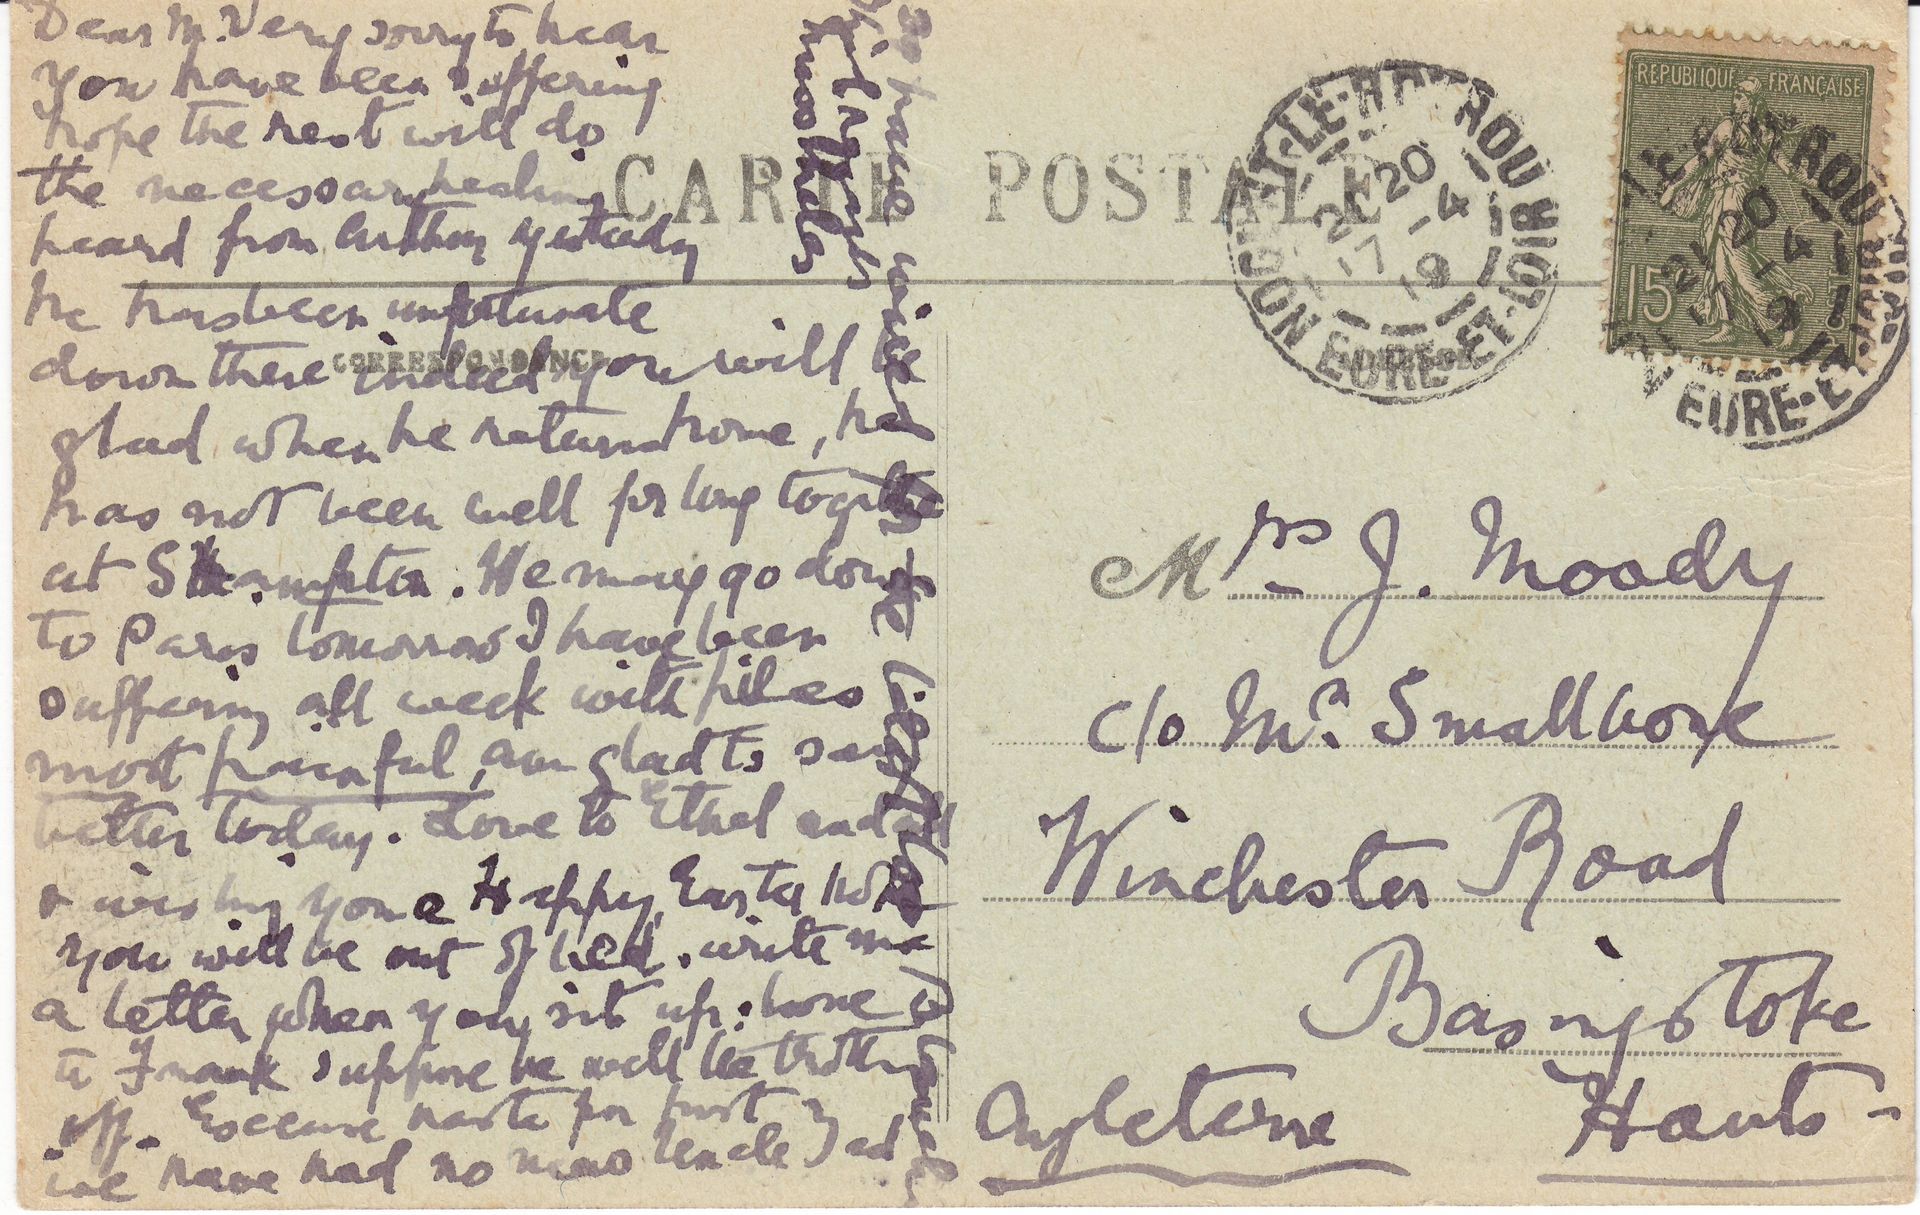 Dear M. Very sorry to hear
you have been suffering
hope the rest will do
the necessary healing
heard from Arthur yesterday
he has been unfortunate
down there indeed you will be
glad when he returns home, he
has not been well for long together
at S'hampton. We may go down
to Paris tomorrow I have been
suffering all week with piles
most painful, am glad to say
better today. Love to Ethel and all
& wishing you a Happy Easter hope
you will be out of bed. write me
a letter when you sit up. love
to Frank suppose he will be trotting
off. Excuse haste for post
we have had no news
CARTE POSTALE
CORRESPONDANCE
REPUBLIQUE FRANÇAISE
15
NOGENT-LE-ROTROU
21 20
17 -4
19
EURE-ET-LOIR
LE-ROTROU
21 20
17 -4
19
EURE-ET-LOIR
Mrs J. Moody
c/o Mrs Smallbone
Winchester Road
Basingstoke
Hants-
Angleterre